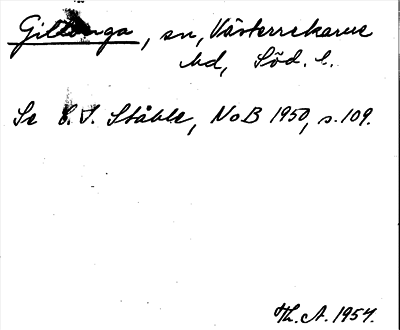 Gillberga, sn, Västerrekarne
hd, Söd. l.
Se C. I. Ståhle, NoB 1950, s. 109.
Th. A. 1954.